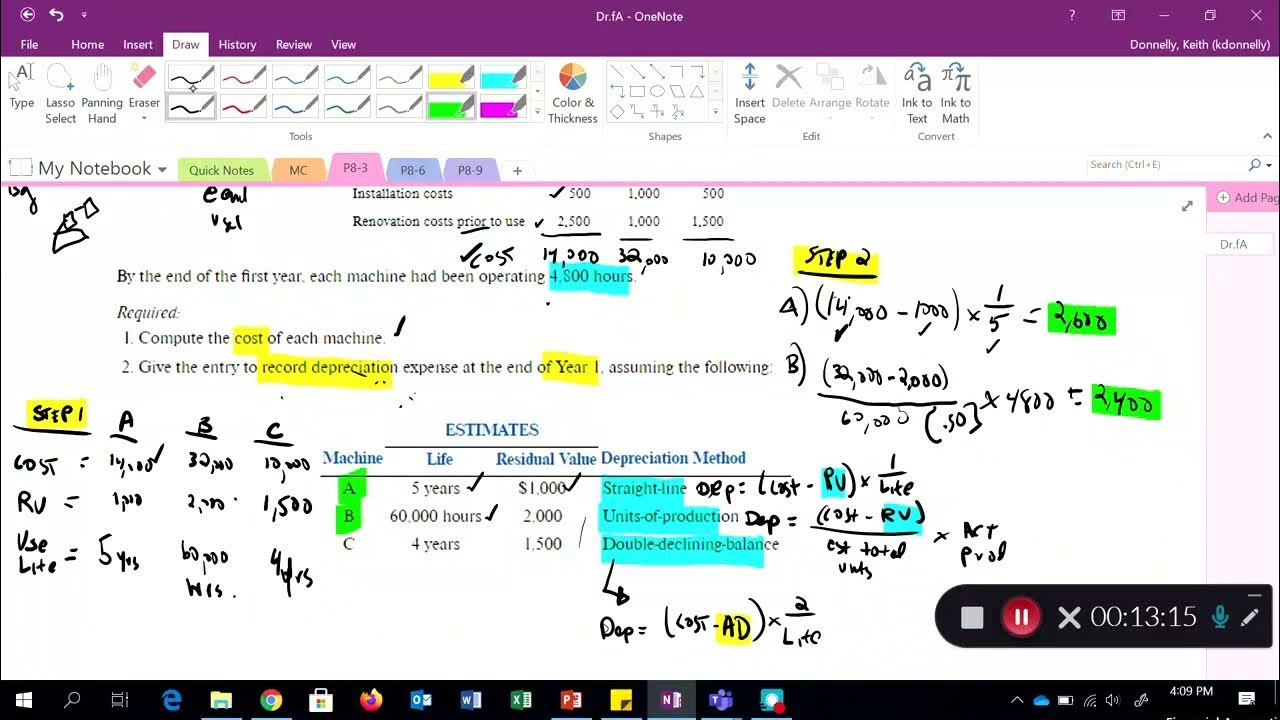 Dr.fA - OneNote
File Home Insert Draw History Review View
Donnelly, Keith (kdonnelly)
Type
Lasso Select
Panning Hand
Eraser
Color & Thickness
Insert Space
Delete
Arrange
Rotate
Ink to Text
Ink to Math
Tools
Shapes
Edit
Convert
My Notebook
Quick Notes
MC
P8-3
P8-6
P8-9
Search (Ctrl+E)
Add Pag
Dr.fA
Installation costs 500 1,000 500
Renovation costs prior to use 2,500 1,000 1,500
COST 14,000 32,000 10,000
By the end of the first year, each machine had been operating 4,800 hours.
Required:
1. Compute the cost of each machine.
2. Give the entry to record depreciation expense at the end of Year 1, assuming the following:
STEP 2
A) (14,000 - 1000) × 1/5 = 2,600
B) (32,000 - 2,000) / 60,000 (.50) × 4800 = 2,400
STEP 1 A B C
COST = 14,000 32,000 10,000
RV = 1,000 2,000 1,500
Use Life = 5 yrs 60,000 hrs. 4 yrs
ESTIMATES
Machine Life Residual Value Depreciation Method
A 5 years $1,000 Straight-line Dep = (Cost - RV) × 1/Life
B 60,000 hours 2,000 Units-of-production Dep = (Cost - RV) / est total units × Act Prod
C 4 years 1,500 Double-declining-balance
Dep = (Cost - AD) × 2/Life
00:13:15
4:09 PM